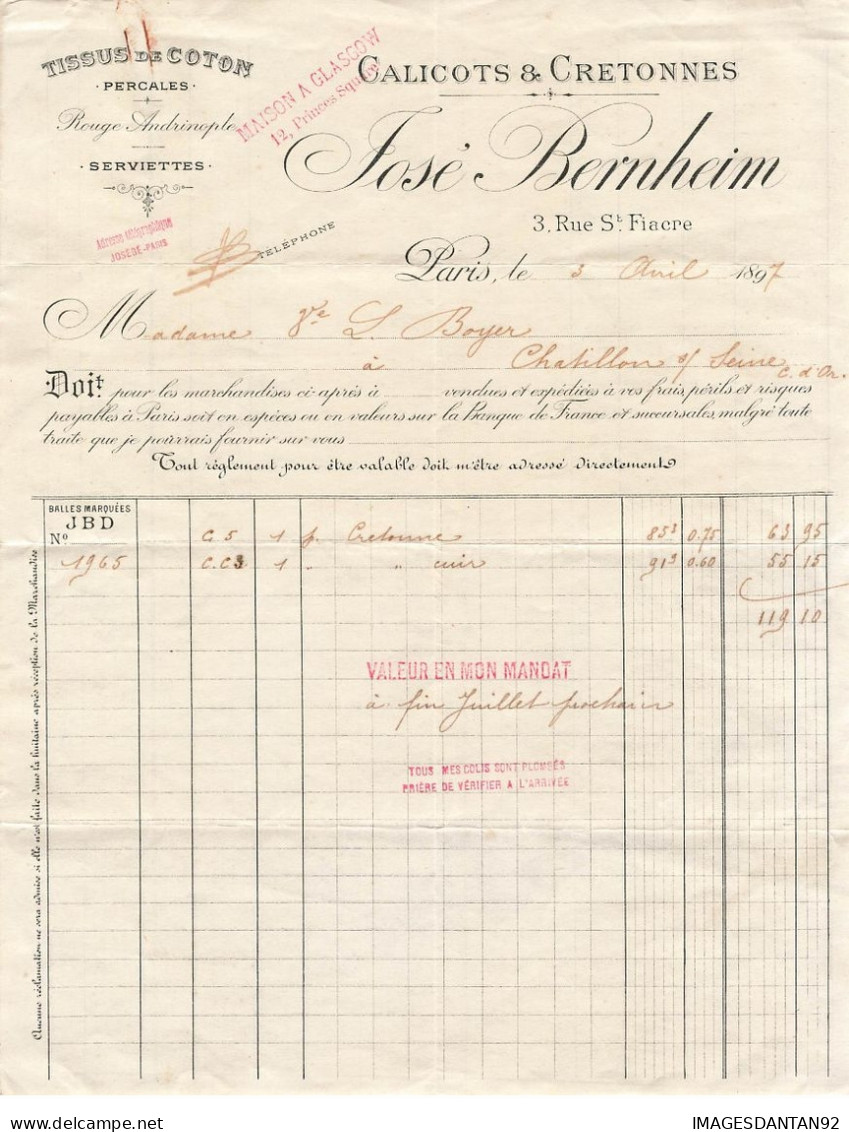 TISSUS DE COTON
PERCALES
Rouge Andrinople
SERVIETTES
Adresse télégraphique
JOSÉBE-PARIS
MAISON A GLASGOW
12, Princes Square
CALICOTS & CRETONNES
José Bernheim
3, Rue St. Fiacre
TÉLÉPHONE
Paris, le 3 Avril 1897
Madame Vve L. Boyer
à Chatillon s/ Seine
C. d'Or.
Doit pour les marchandises ci-après à vendues et expédiées à vos frais, périls et risques
payables à Paris soit en espèces ou en valeurs sur la Banque de France et succursales, malgré toute
traite que je pourrais fournir sur vous
Tout règlement pour être valable doit m'être adressé directement
BALLES MARQUÉES
JBD
No
C. 5 1 p. Cretonne 85 3 0.75 63 95
1965 C.C3 1 " " cuir 91 3 0.60 55 15
119 10
VALEUR EN MON MANDAT
à fin Juillet prochain
TOUS MES COLIS SONT PLOMBÉS
PRIÈRE DE VÉRIFIER A L'ARRIVÉE
Aucune réclamation ne sera admise si elle n'est faite dans la huitaine après réception de la Marchandise
IMAGESDANTAN92
delcampe.net